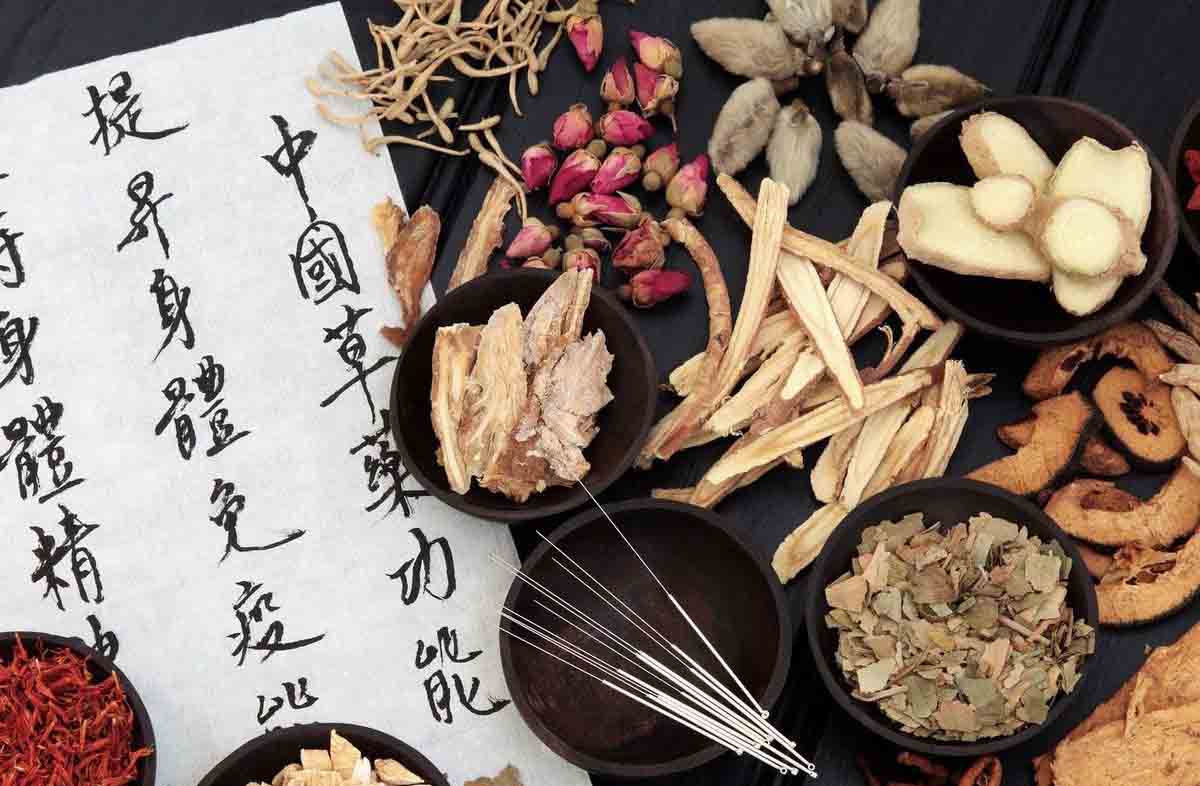 中國草藥功能
提昇身體免疫能
身體精